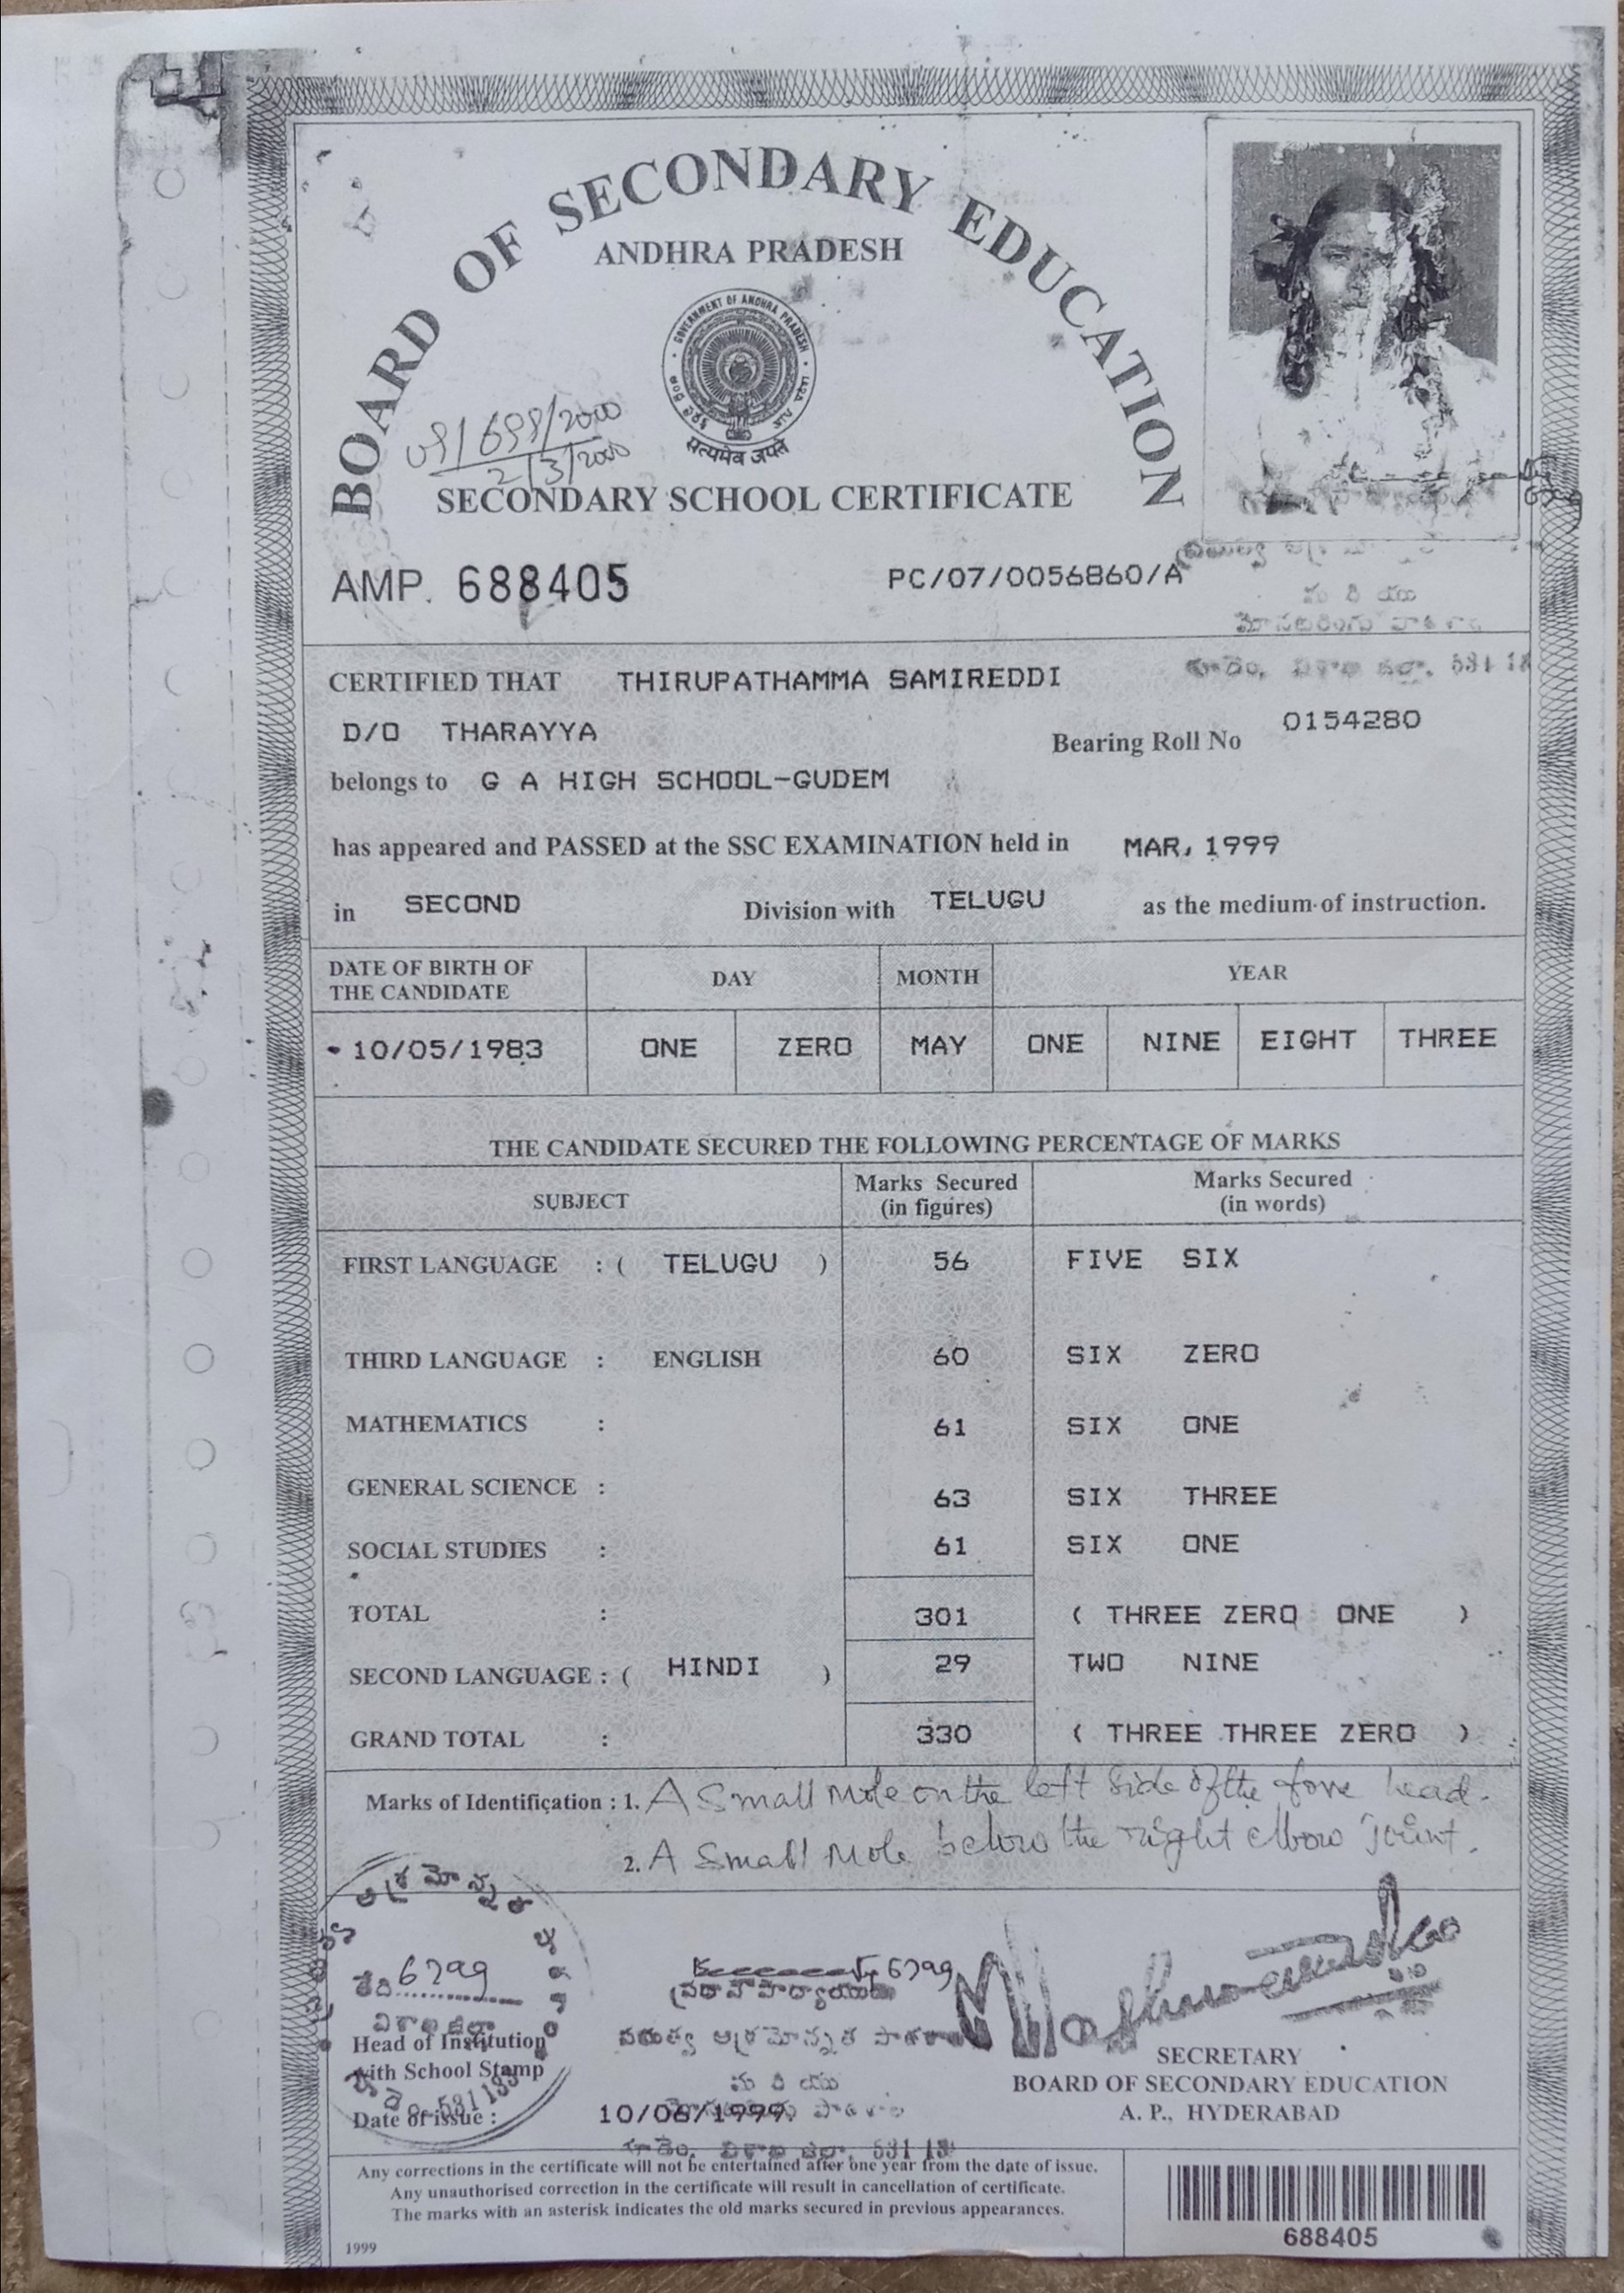 BOARD OF SECONDARY EDUCATION
ANDHRA PRADESH
GOVERNMENT OF ANDHRA PRADESH
सत्यमेव जयते
09/698/2000
2/3/2000
SECONDARY SCHOOL CERTIFICATE
AMP. 688405 PC/07/0056860/A
మ రి యు
CERTIFIED THAT THIRUPATHAMMA SAMIREDDI
D/O THARAYYA Bearing Roll No 0154280
belongs to G A HIGH SCHOOL-GUDEM
has appeared and PASSED at the SSC EXAMINATION held in MAR, 1999
in SECOND Division with TELUGU as the medium of instruction.
DATE OF BIRTH OF THE CANDIDATE DAY MONTH YEAR
10/05/1983 ONE ZERO MAY ONE NINE EIGHT THREE
THE CANDIDATE SECURED THE FOLLOWING PERCENTAGE OF MARKS
SUBJECT Marks Secured (in figures) Marks Secured (in words)
FIRST LANGUAGE : ( TELUGU ) 56 FIVE SIX
THIRD LANGUAGE : ENGLISH 60 SIX ZERO
MATHEMATICS : 61 SIX ONE
GENERAL SCIENCE : 63 SIX THREE
SOCIAL STUDIES : 61 SIX ONE
TOTAL : 301 ( THREE ZERO ONE )
SECOND LANGUAGE : ( HINDI ) 29 TWO NINE
GRAND TOTAL : 330 ( THREE THREE ZERO )
Marks of Identification : 1. A Small Mole on the left side of the fore head.
2. A Small Mole below the right elbow joint.
6799
ప్రధానోపాధ్యాయుడు
ఆశ్రమోన్నత
మ రి యు
Head of Institution
with School Stamp
SECRETARY
BOARD OF SECONDARY EDUCATION
A. P., HYDERABAD
Date of issue : 10/06/1999
Any corrections in the certificate will not be entertained after one year from the date of issue.
Any unauthorised correction in the certificate will result in cancellation of certificate.
The marks with an asterisk indicates the old marks secured in previous appearances.
1999
688405